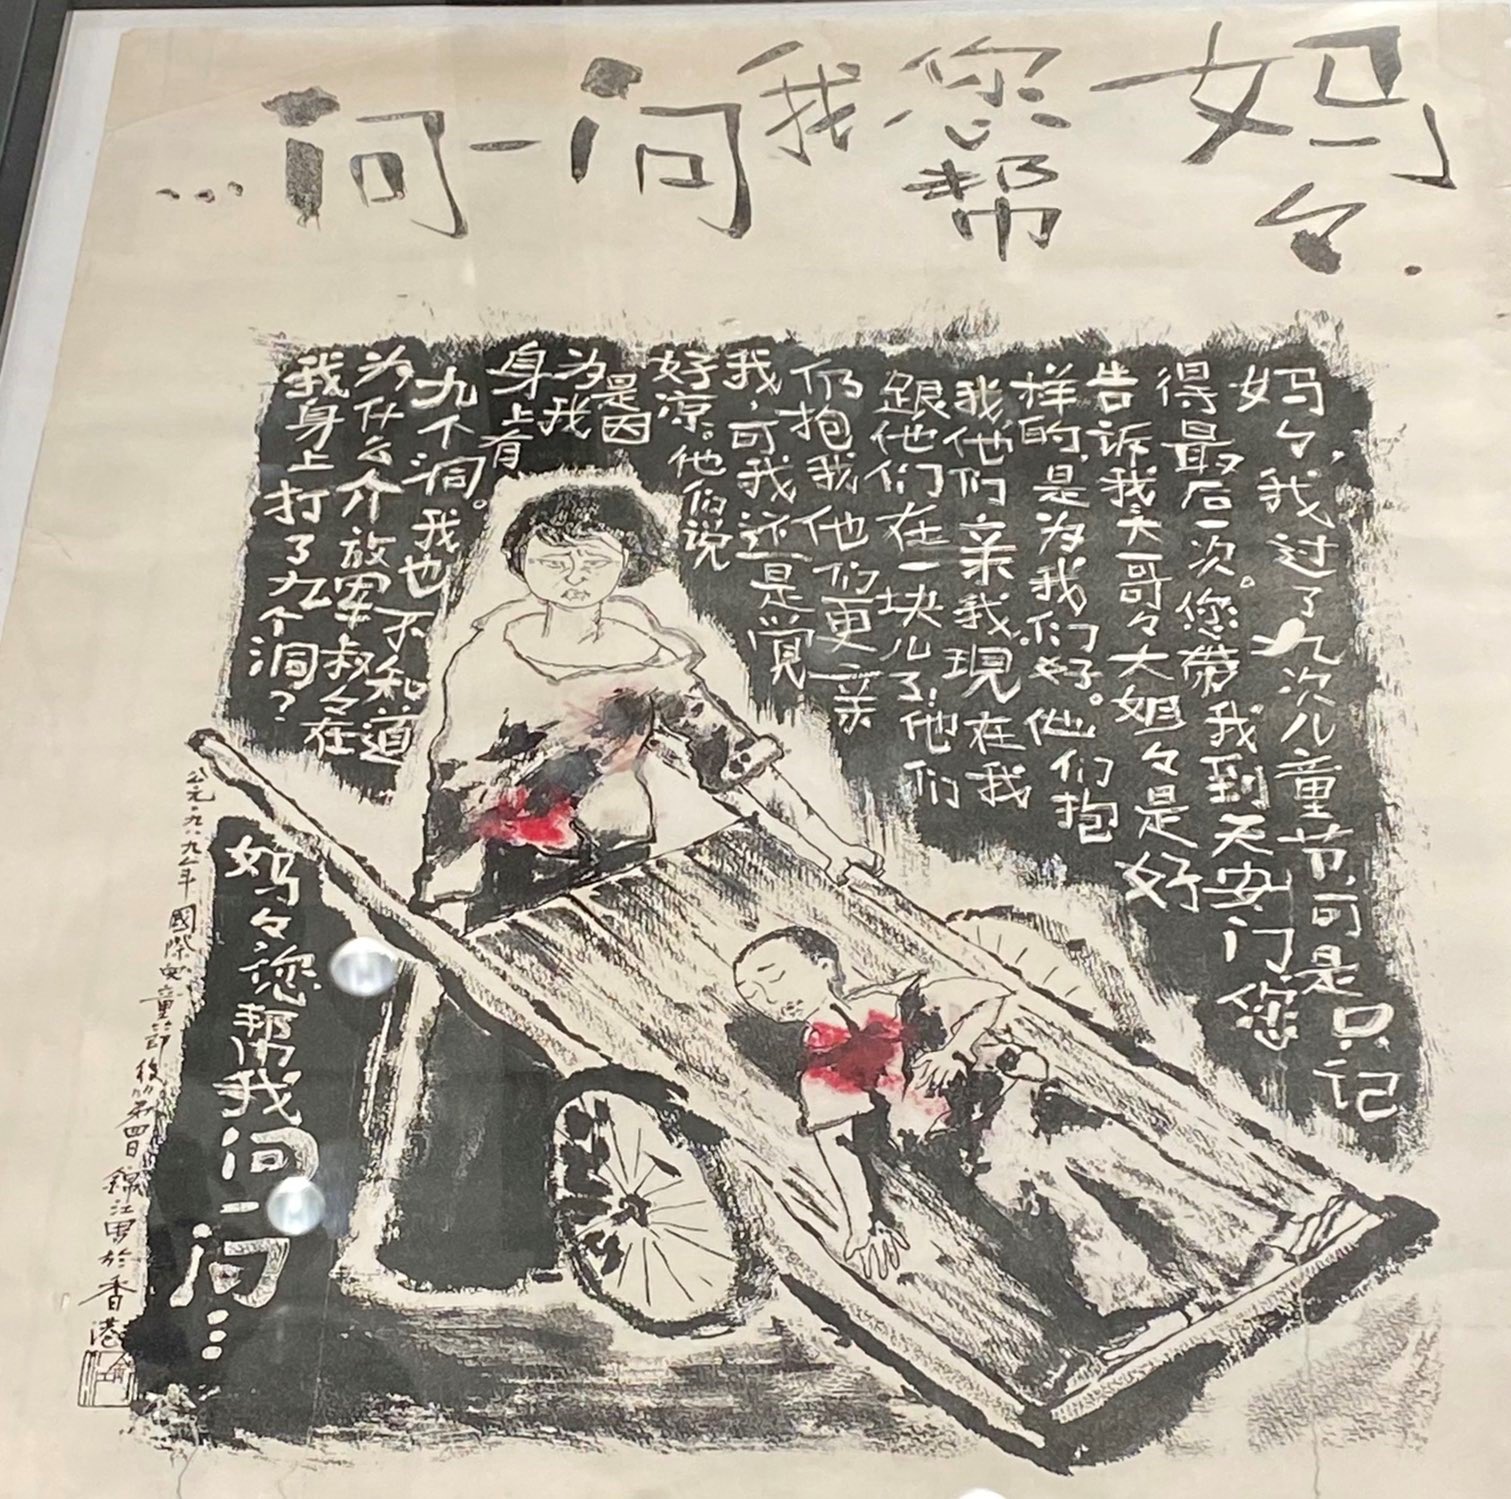 妈々.
您帮
我问一问…
妈々,我过了九次儿童节,可是只记
得最后一次。您带我到天安门,您
告诉我大哥々大姐々是好
样的,是为我们好。他们抱
我他们亲我。現在我
跟他们在一块儿了,他们
仍抱我他们更亲
我,可我还是覚
好凉。他们说
是因
为我
身上有
九个洞。我也不知道
为什么介放军叔々在
我身上打了九个洞?
妈々您帮我问一问……
公元 年 國際兒童節後 四日 錦江 於香港